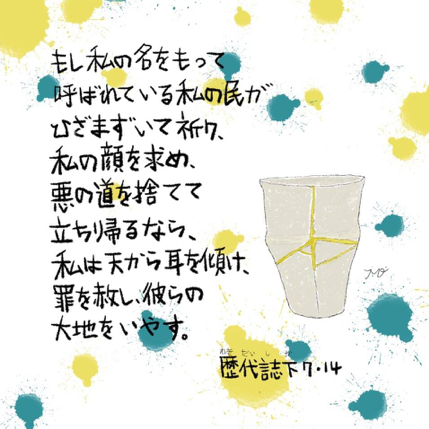 もし私の名をもって
呼ばれている私の民が
ひざまずいて祈り、
私の顔を求め、
悪の道を捨てて
立ち帰るなら、
私は天から耳を傾け、
罪を赦し、彼らの
大地をいやす。
歴代誌下7・14